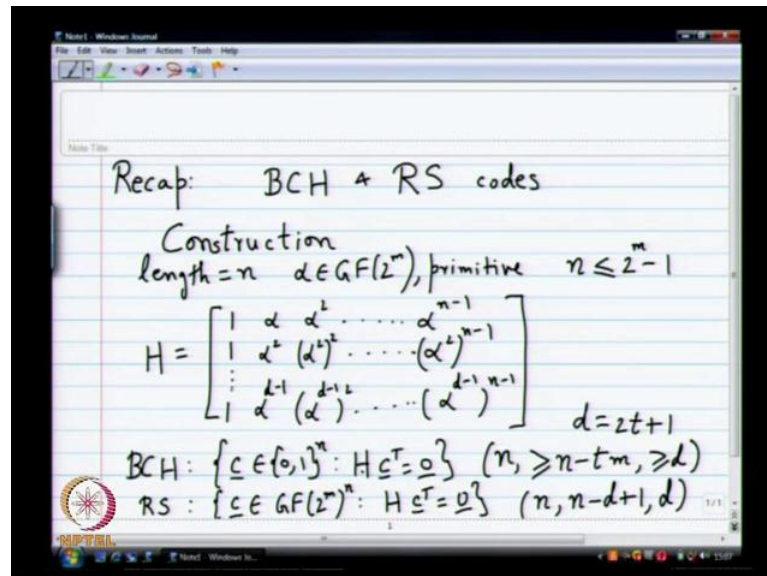 Note1 - Windows Journal
File Edit View Insert Actions Tools Help
Note Title
Recap: BCH & RS codes
Construction
length = n α ∈ GF(2^m), primitive n ≤ 2^m - 1
H = [ 1 α α^2 ..... α^{n-1}
1 α^2 (α^2)^2 ..... (α^2)^{n-1}
⋮
1 α^{d-1} (α^{d-1})^2 ..... (α^{d-1})^{n-1} ]
d = 2t+1
BCH : {c ∈ {0,1}^n : H c^T = 0} (n, ≥ n-tm, ≥ d)
RS : {c ∈ GF(2^m)^n : H c^T = 0} (n, n-d+1, d)
1/1
1
NPTEL
Note1 - Windows Jo...
1507